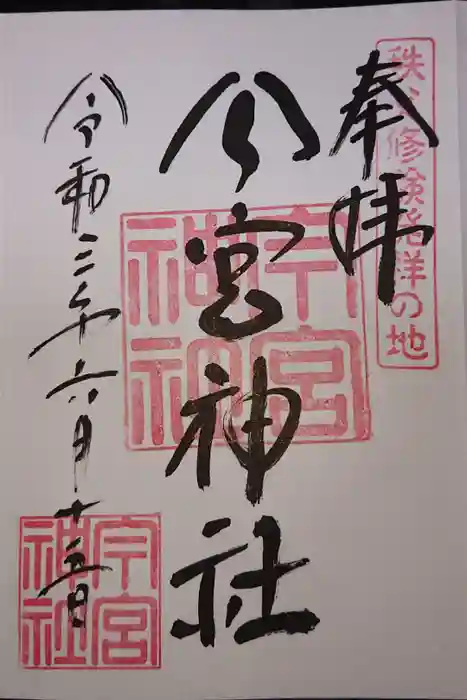 秩父修験発祥の地
奉拝
今宮神社
令和三年六月十三日
今宮神社
今宮神社